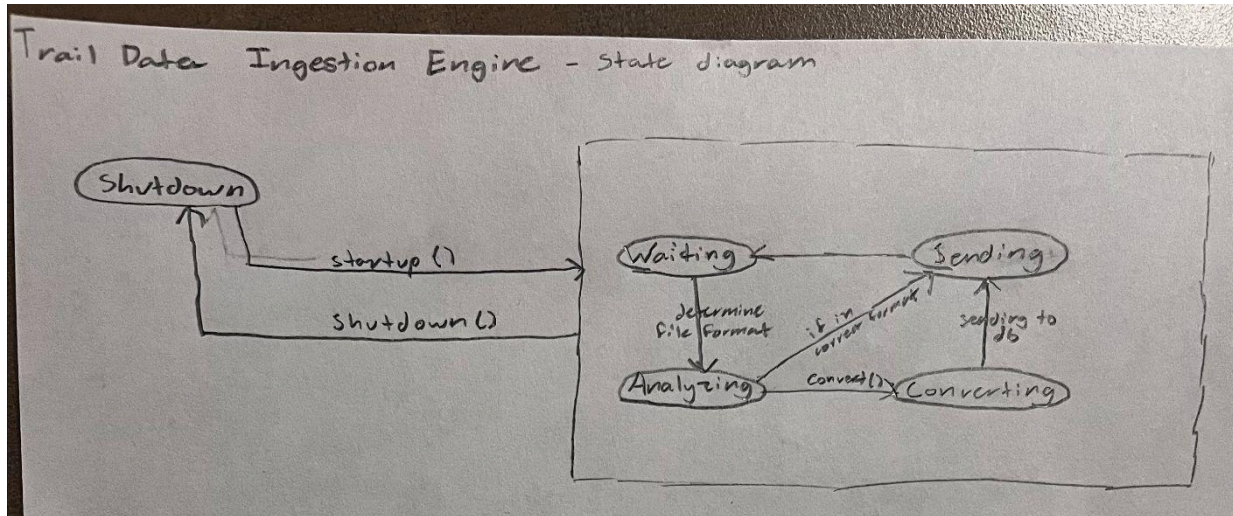 Trail Data Ingestion Engine - State diagram
Shutdown
startup ()
Shutdown ()
Waiting
Sending
determine
file format
if in
correct format
sending to
db
Analyzing
Convert()
Converting